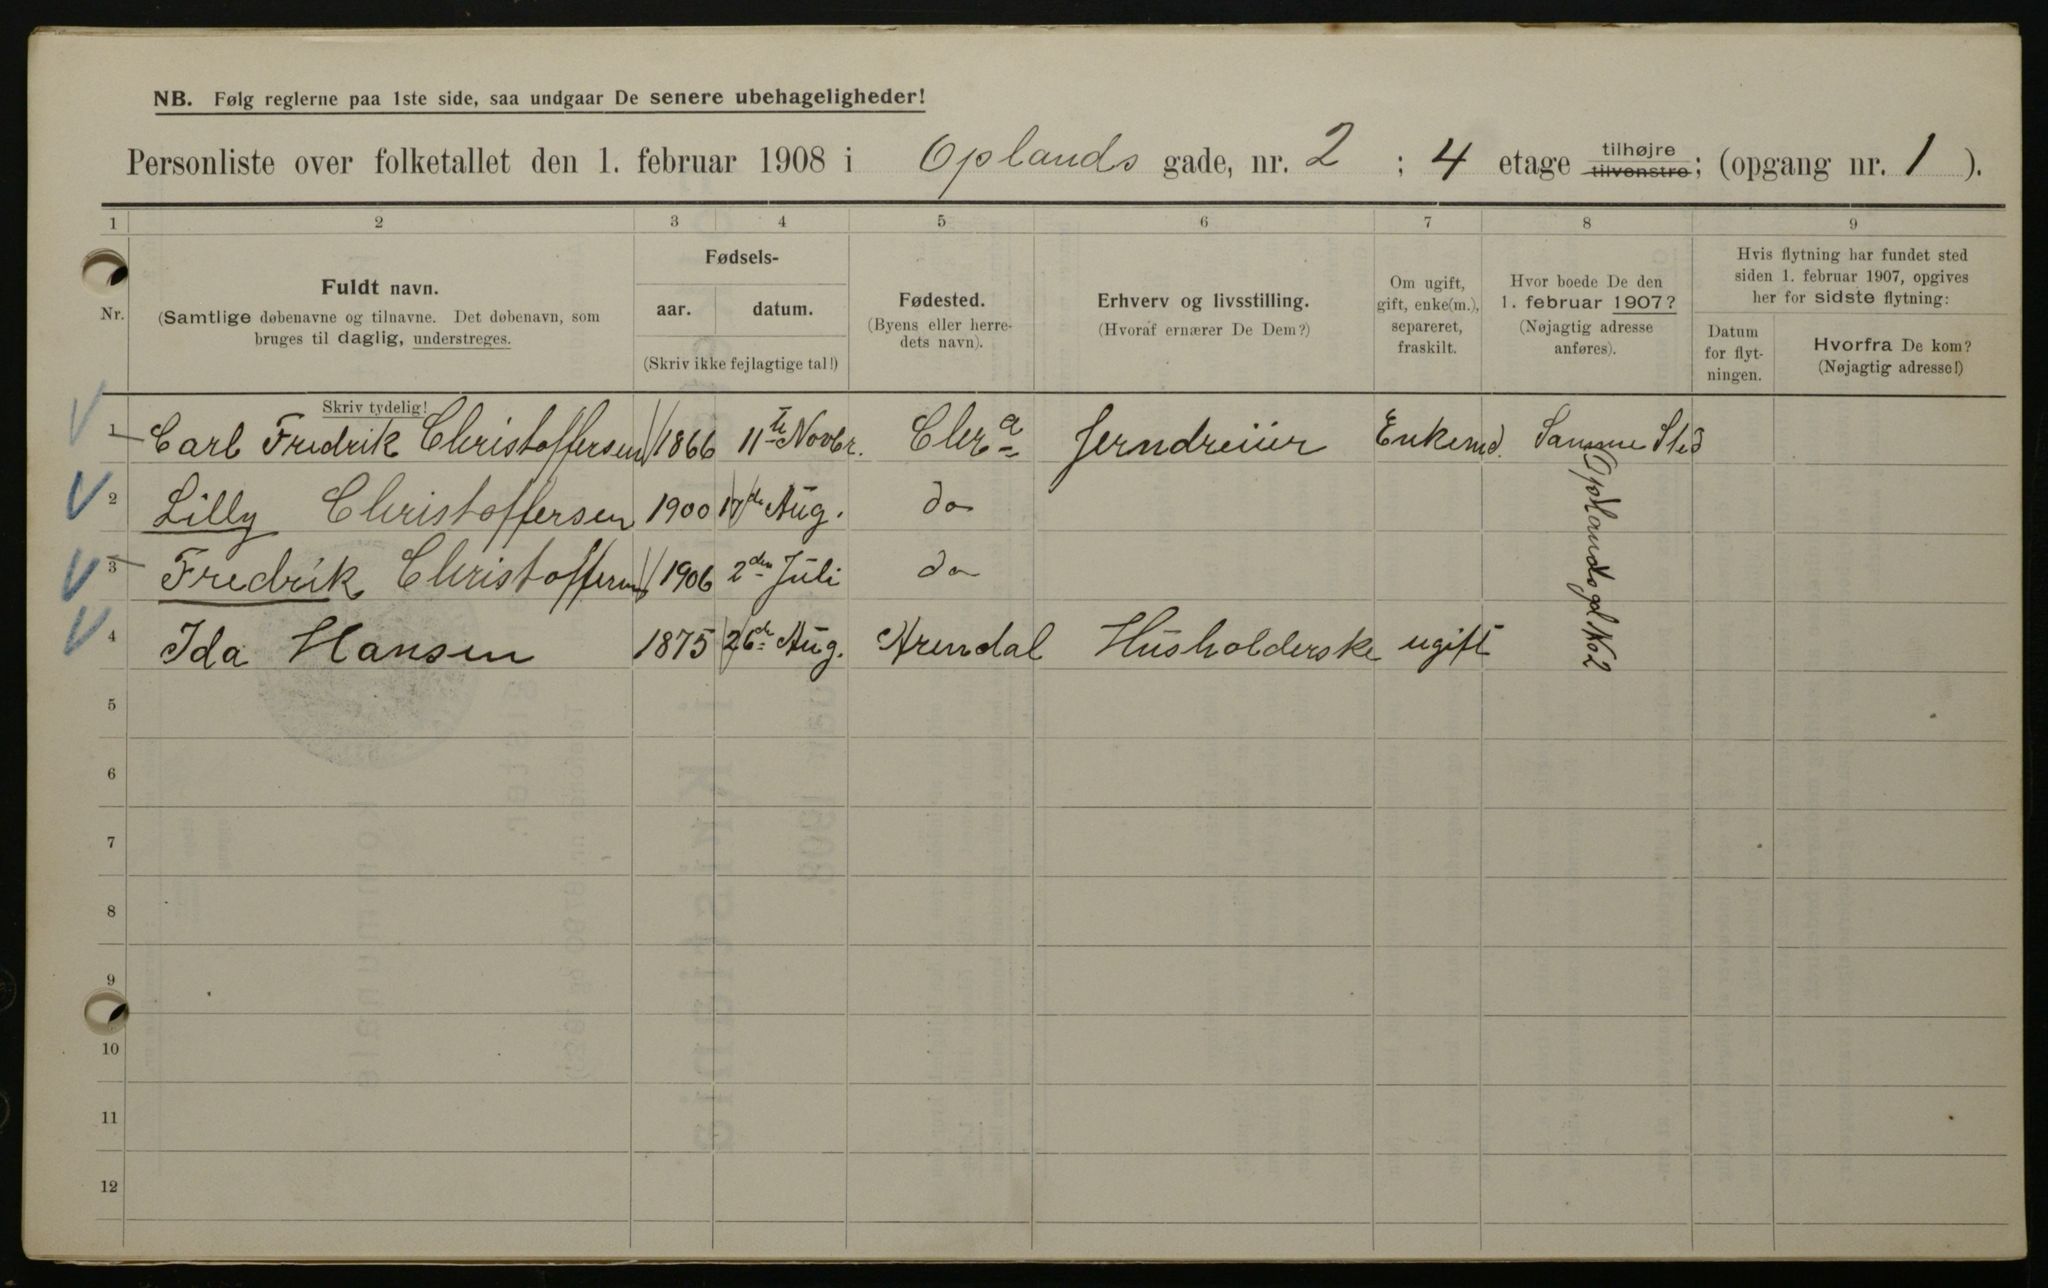 NB. Følg reglerne paa 1ste side, saa undgaar De senere ubehageligheder!
Personliste over folketallet den 1. februar 1908 i Oplands gade, nr. 2 ; 4 etage tilhøjre tilvenstre; (opgang nr. 1 ).
1 2 3 4 5 6 7 8 9
Nr.
Fuldt navn.
(Samtlige døbenavne og tilnavne. Det døbenavn, som
bruges til daglig, understreges.
Skriv tydelig!
Fødsels-
aar. datum.
(Skriv ikke fejlagtige tal!)
Fødested.
(Byens eller herre-
dets navn).
Erhverv og livsstilling.
(Hvoraf ernærer De Dem?)
Om ugift,
gift, enke(m.),
separeret,
fraskilt.
Hvor boede De den
1. februar 1907?
(Nøjagtig adresse
anføres).
Hvis flytning har fundet sted
siden 1. februar 1907, opgives
her for sidste flytning:
Datum
for flyt-
ningen.
Hvorfra De kom?
(Nøjagtig adresse!)
1 Carl Fredrik Christoffersen 1866 11te Novbr. Chra Jerndreiier Enkemd. Samme Sted
2 Lilly Christoffersen 1900 17de Aug. do
3 Fredrik Christoffersen 1906 2den Juli do
4 Ida Hansen 1875 26de Aug. Arendal Husholderske ugift
Oplandsgd No 2
5
6
7
8
9
10
11
12